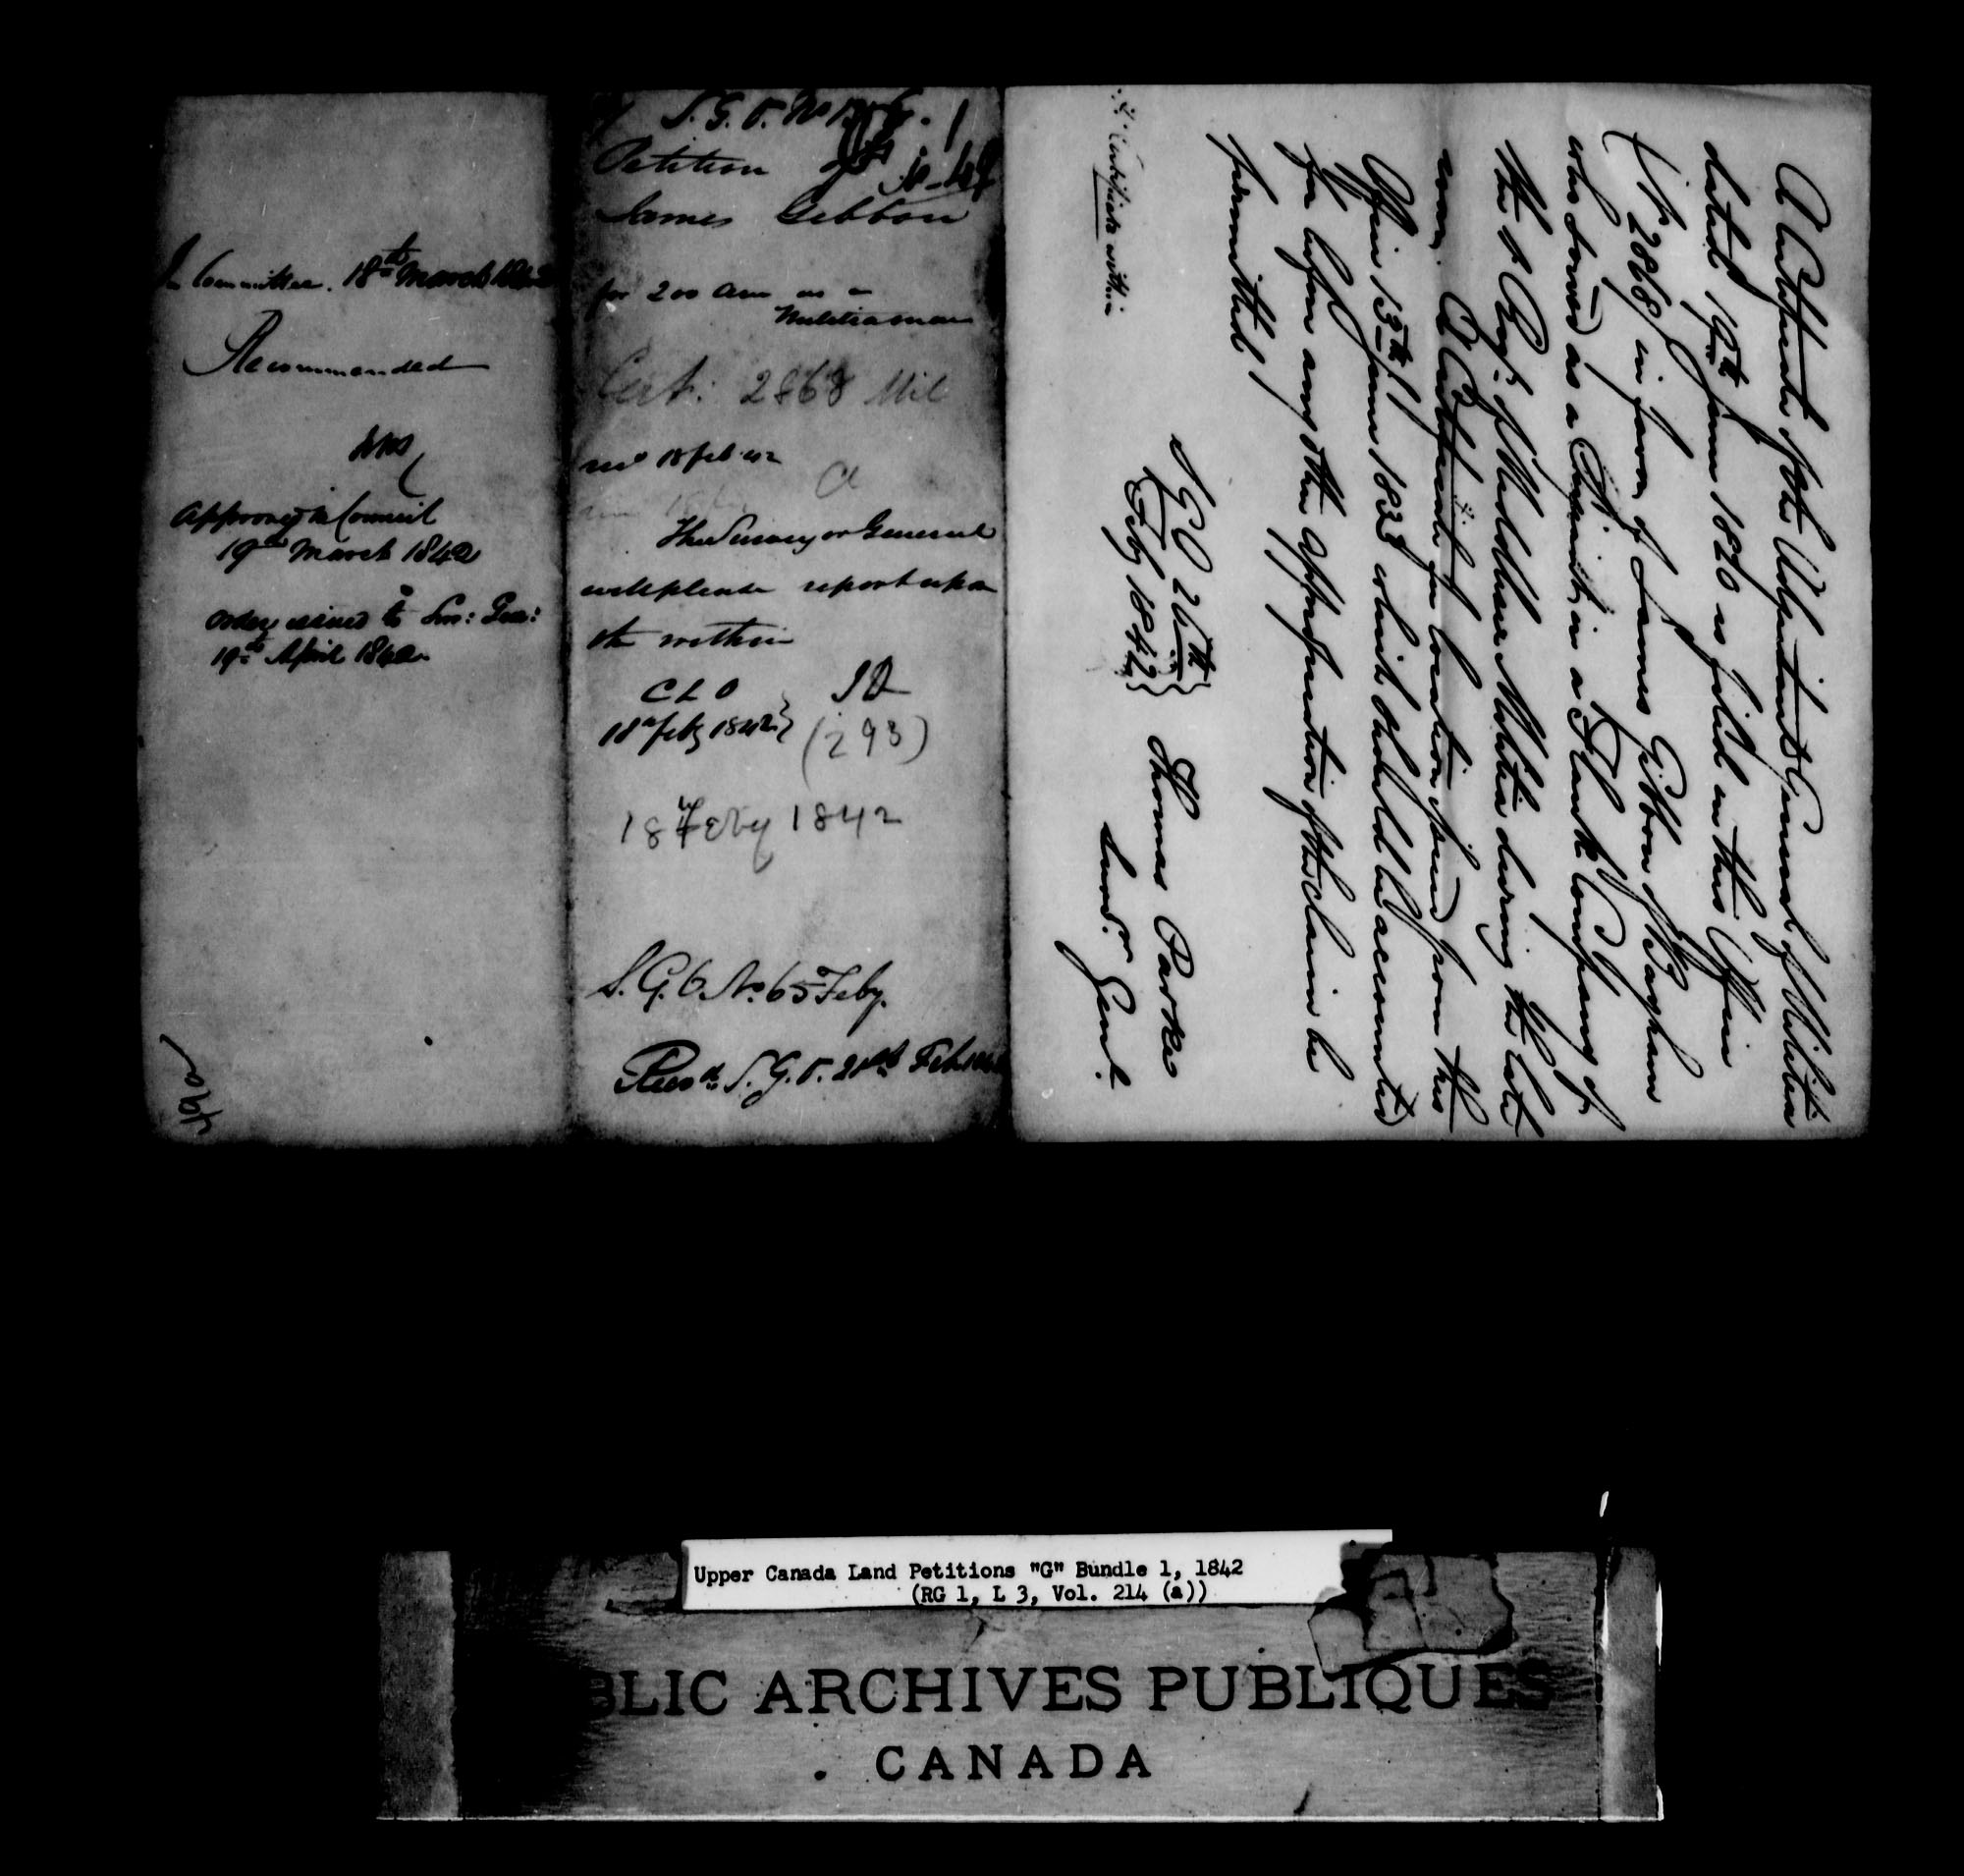 In Committee. 18th March 1842
Recommended
Approved in Council
19th March 1842
Order issued to Sur: Gen:
19th April 1842
S. G. O. No
Petition of
James Gibbon
for 200 acres as a
Militiaman
Cert: 2868 Mil
recd 18 feb 42
a
The Surveyor General
will please report upon
the within
C L O
18th feby 1842
(293)
18th Feby 1842
S. G. O. No 65 Feby.
Recd S. G. O. 21st Feb 1842
A Certificate of the Adjutant General of Militia
dated 19th June 1820 is filed in this Office
(No 2868) in favor of James Gibbon of Bayham
who served as a Sergeant in a Flank Company of
the 1st Regt. of Middlesex Militia during the late
war. A Certificate for location issued from this
Office 13th June 1828 which should be accounted
for before any other appropriation of the claim be
permitted
S G O 26th
Feby 1842
Thomas Parke
Survr. Genl.
Certificate within
Upper Canada Land Petitions "G" Bundle 1, 1842
(RG 1, L 3, Vol. 214 (a))
BLIC ARCHIVES PUBLIQUES
CANADA